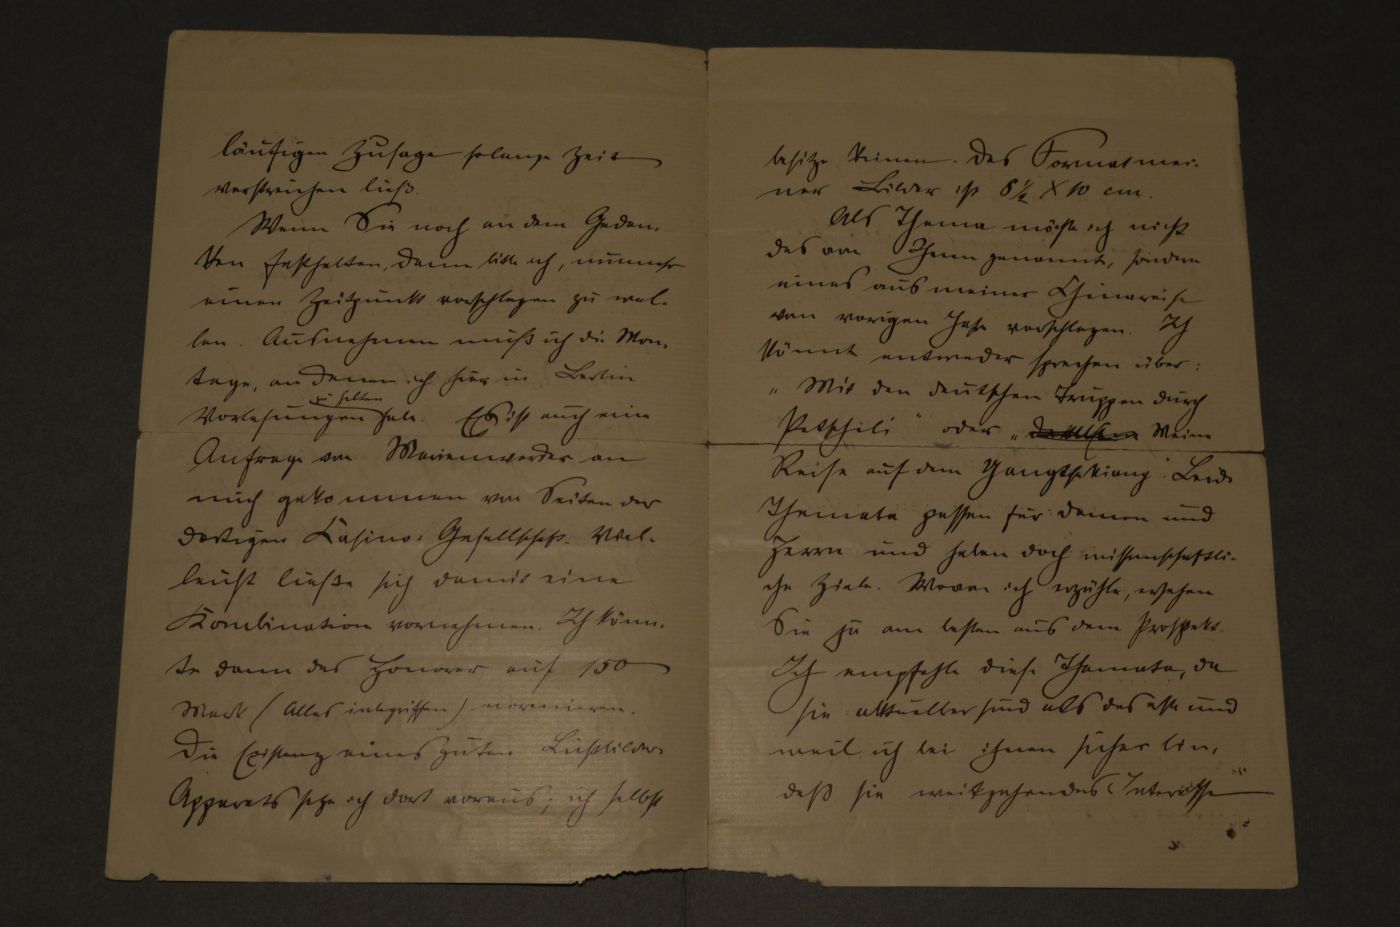 läufigen Zusage solange Zeit
verstreichen ließ.
Wenn Sie noch an dem Gedan-
ken festhalten, dann bitte ich, nunmehr
einen Zeitpunkt vorschlagen zu wol-
len. Ausnehmen muß ich die Mon-
tage, an denen ich hier in Berlin
zu halten
Vorlesungen habe. Es ist auch eine
Anfrage von Marienwerder an
mich gekommen von Seiten der
dortigen Kasino-Gesellschaft. Viel-
leicht ließe sich damit eine
Kombination vornehmen. Ich könn-
te dann das Honorar auf 150
Mark (Alles inbegriffen) normieren.
Die Existenz eines guten Lichtbilder-
Apparats setze ich dort voraus; ich selbst
besitze keinen. Das Format mei-
ner Bilder ist 8 1/2 X 10 cm.
Als Thema möchte ich nicht
das von Ihnen genannte, sondern
eines aus meiner Chinareise
vom vorigen Jahr vorschlagen. Ich
könnte entweder sprechen über:
"Mit den deutschen Truppen durch
Petschili" oder "Meine
Reise auf dem Yangtsekiang". Beide
Themata passen für Damen und
Herrn und haben doch wissenschaftli-
che Ziele. Wovon ich erzähle, ersehen
Sie ja am besten aus dem Prospekt.
Ich empfehle diese Themata, da
sie aktueller sind als das erste und
weil ich bei ihnen sicher bin,
daß sie weitgehendes Interesse